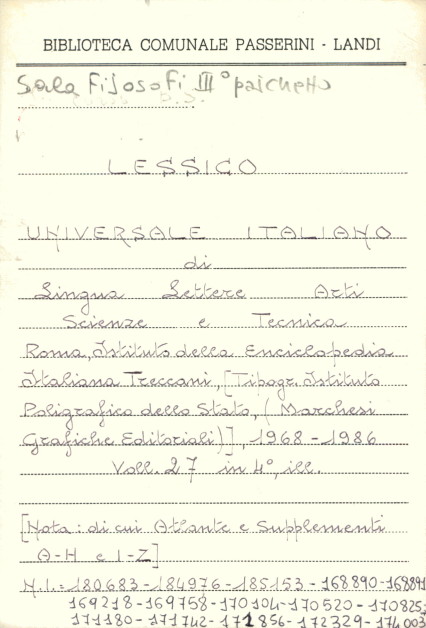 BIBLIOTECA COMUNALE PASSERINI - LANDI
Sala Filosofi III° palchetto
LESSICO
UNIVERSALE ITALIANO
di
Lingua Lettere Arti
Scienze e Tecnica
Roma, Istituto della Enciclopedia
Italiana Treccani, [Tipogr. Istituto
Poligrafico dello Stato, (Marchesi
Grafiche Editoriali)], 1968-1986
Voll. 27 in 4°, ill.
[Nota: di cui Atlante e Supplementi
A-H e I-Z]
N.I.= 180683-184976-185153-168890-168891
169218-169758-170104-170520-170825;
171180-171742-171856-172329-174003